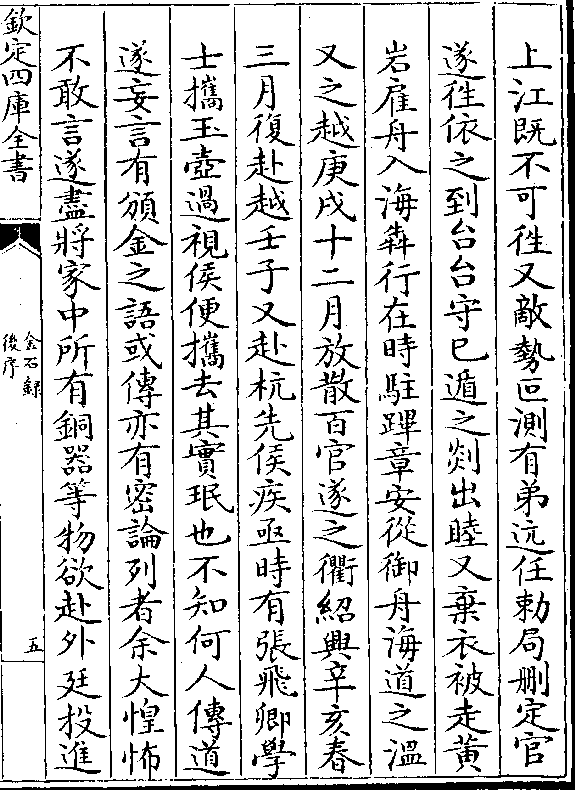 上江既不可徃又敵勢叵測有弟迒任勅局刪定官
遂徃依之到台台守已遁之剡出睦又棄衣被走黄
岩雇舟入海犇行在時駐蹕章安從御舟海道之溫
又之越庚戌十二月放散百官遂之衢紹興辛亥春
三月復赴越壬子又赴杭先侯疾亟時有張飛卿學
士攜玉壺過視侯便攜去其實珉也不知何人傳道
遂妄言有頒金之語或傳亦有密論列者余大惶怖
不敢言遂盡將家中所有銅器等物欲赴外廷投進
欽定四庫全書
金石録
後序
五